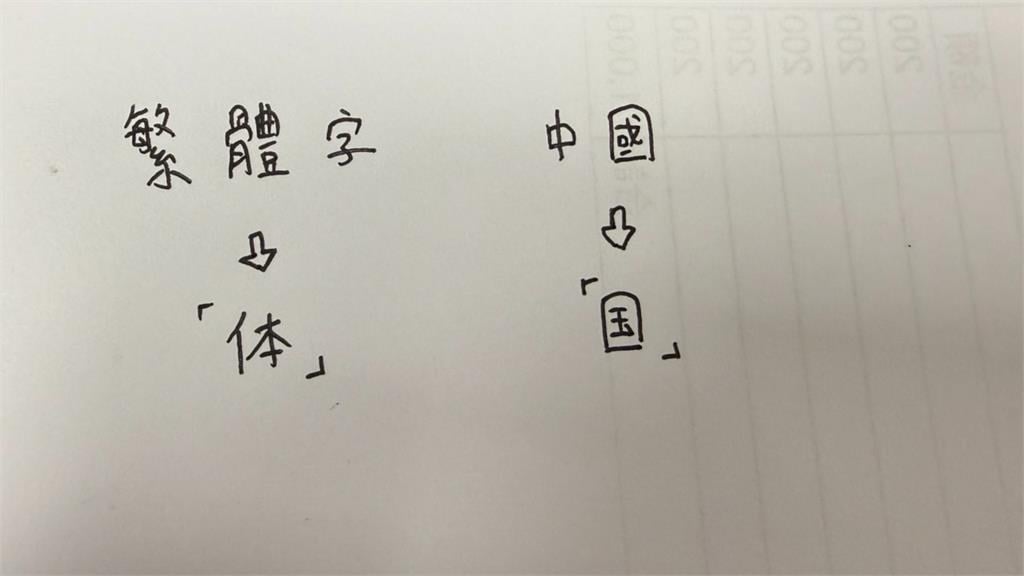 繁體字 中國
⇩ ⇩
「体」 「国」